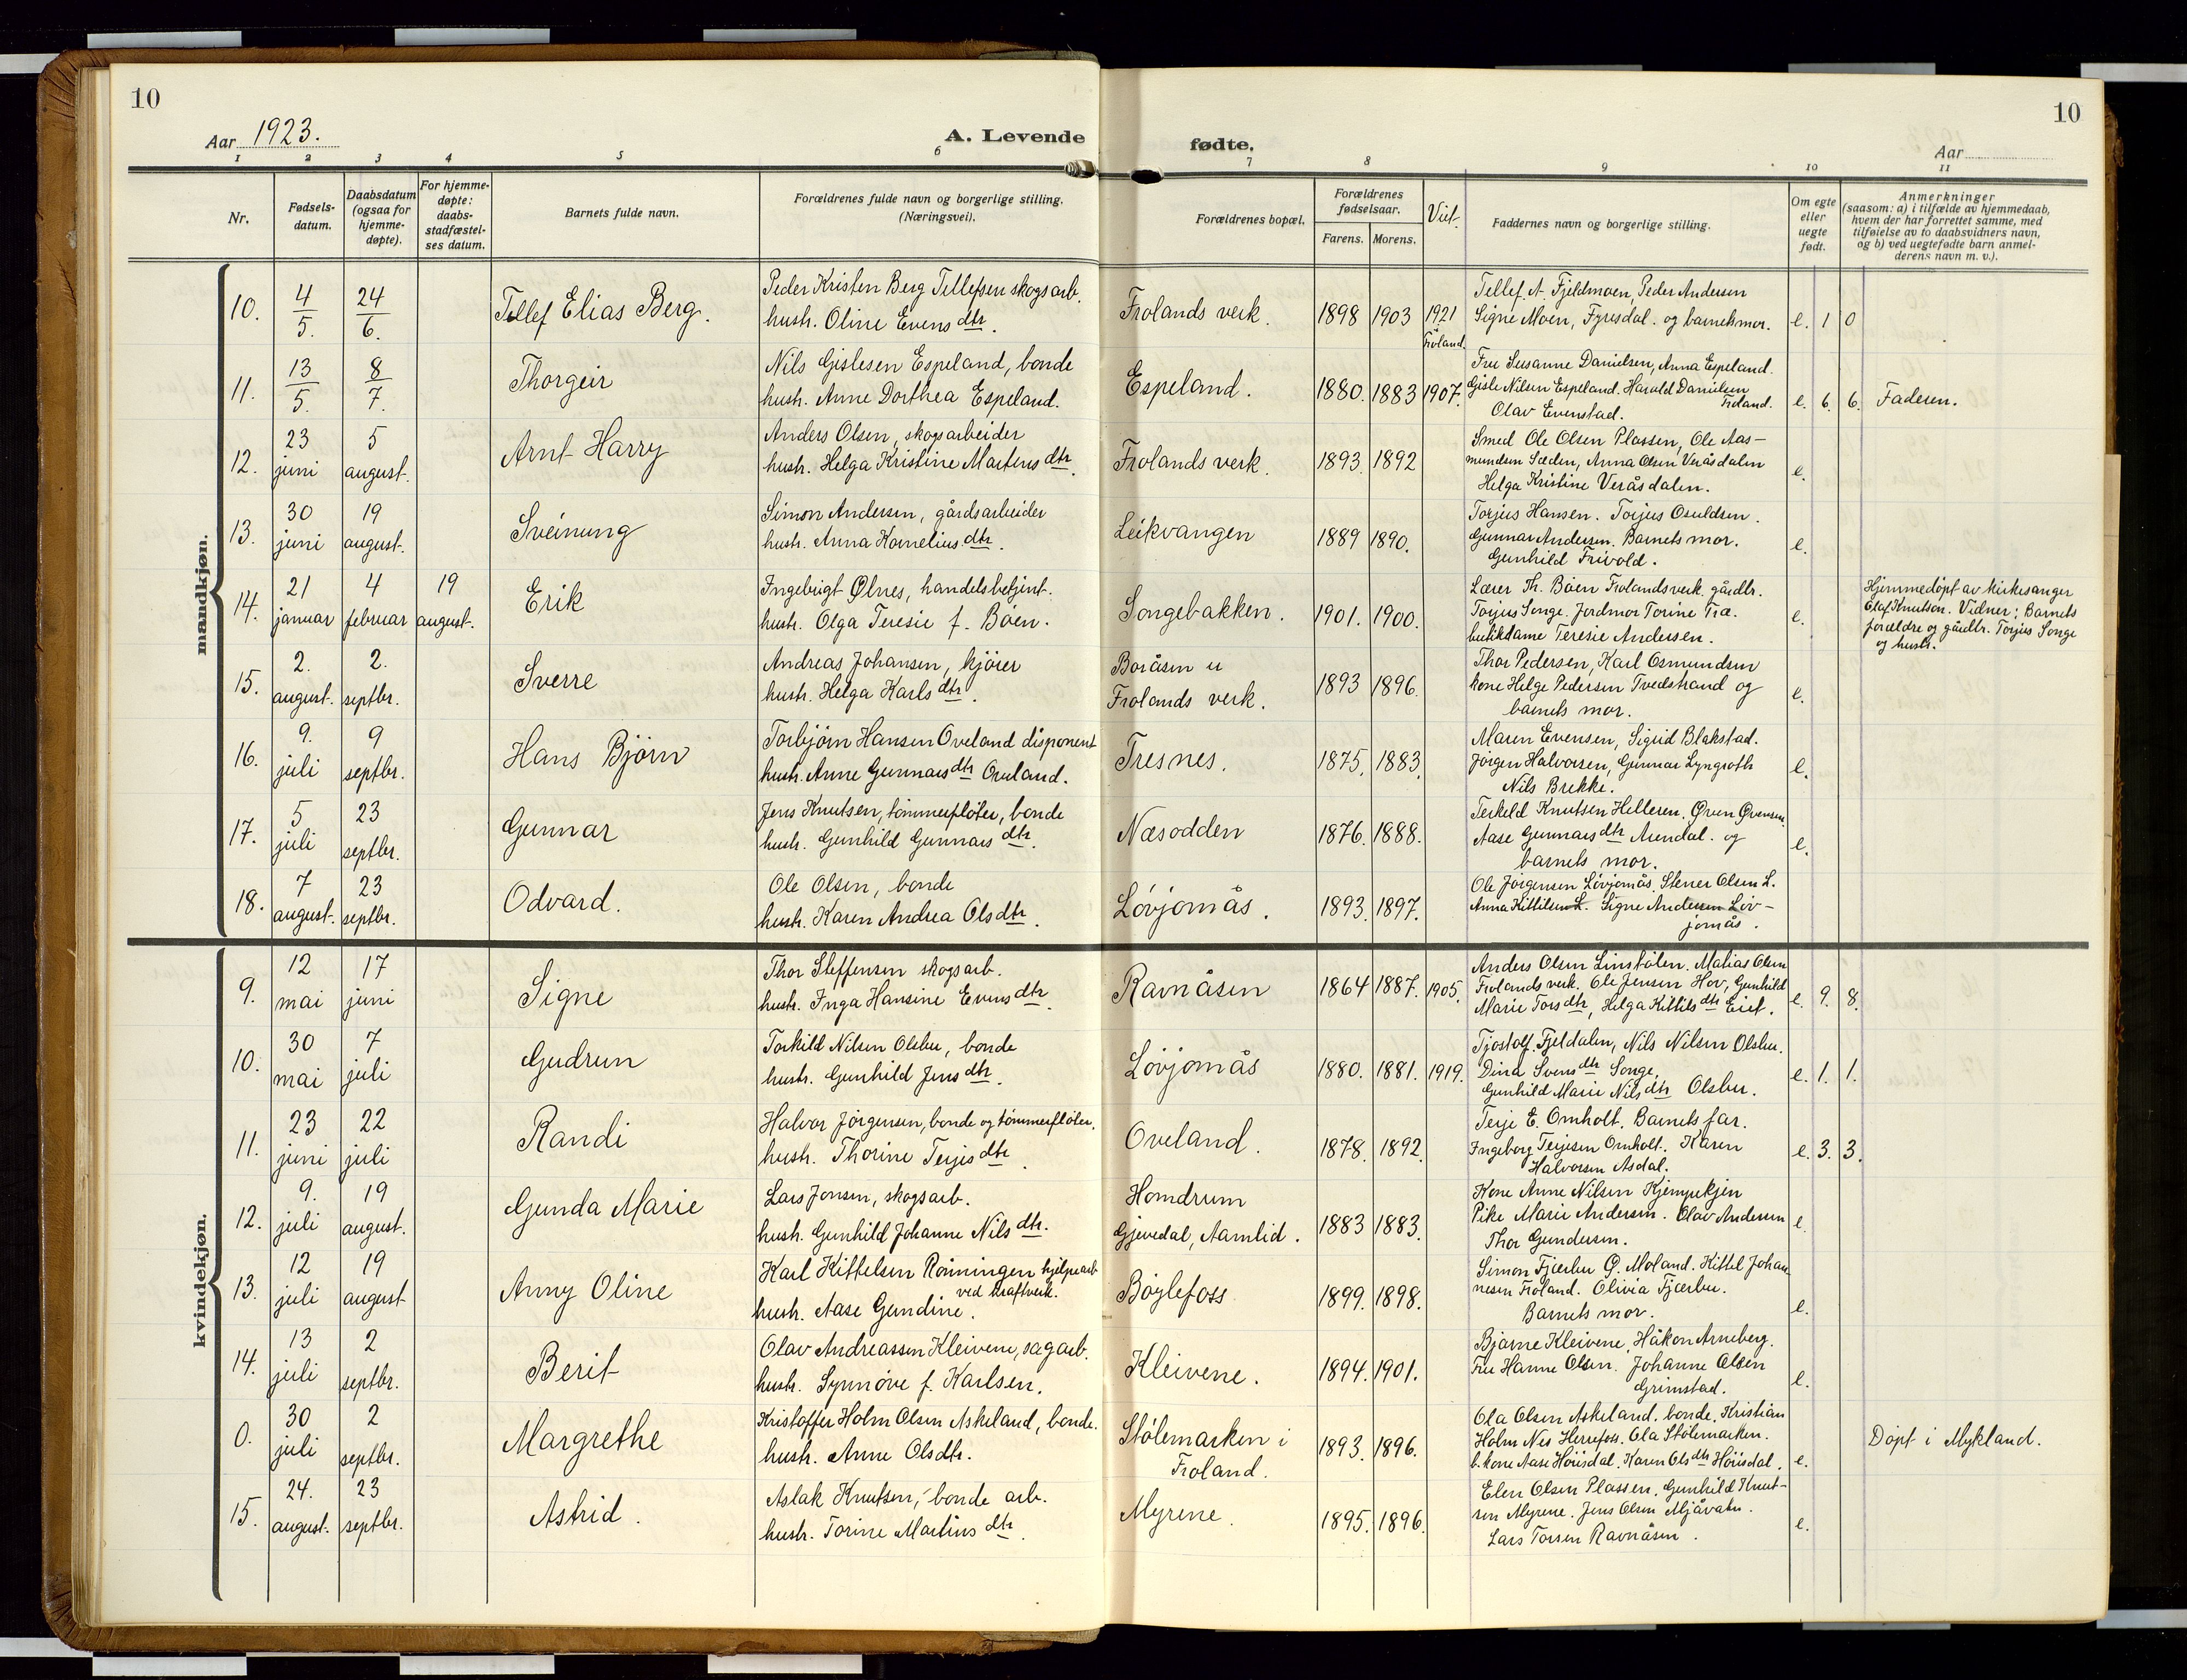 10
10
Aar 1923.
A. Levende fødte.
Aar
1 2 3 4 5 6 7 8 9 10 11
Nr.
Fødsels-
datum.
Daabsdatum
(ogsaa for
hjemme-
døpte).
For hjemme-
døpte:
daabs-
stadfæstel-
ses datum.
Barnets fulde navn.
Forældrenes fulde navn og borgerlige stilling.
(Næringsvei).
Forældrenes bopæl.
Forældrenes
fødselsaar.
Farens. Morens.
Viet.
Faddernes navn og borgerlige stilling.
Om egte
eller
uegte
født.
Anmerkninger
(saasom: a) i tilfælde av hjemmedaab,
hvem der har forrettet samme, med
tilføielse av to daabsvidners navn,
og b) ved uegtefødte barn anmel-
derens navn m. v.).
mandkjøn.
10. 4/5. 24/6. Tellef Elias Berg.
Peder Kristen Berg Tellefsen skogsarb.
hustr. Oline Evensdtr.
Frolands verk. 1898 1903 1921 Froland.
Tellef A. Fjeldmoen, Peder Andersen
Signe Moen, Fyresdal. og barnets mor. e. 1 0
11. 13/5. 8/7. Thorgeir
Nils Gislesen Espeland, bonde
hustr. Anne Dorthea Espeland.
Espeland. 1880. 1883 1907.
Fru Susanne Danielsen, Anna Espeland.
Gisle Nilsen Espeland. Harald Danielsen
Froland.
Olav Evenstad. e. 6. 6. Faderen.
12. 23 juni 5 august. Arnt Harry
Anders Olsen, skogsarbeider
hustr. Helga Kristine Martensdtr.
Frolands verk. 1893. 1892
Smed Ole Olsen Plassen, Ole Aas-
mundsen Sæden, Anna Olsen Veråsdalen
Helga Kristine Veråsdalen. e.
13. 30 juni 19 august. Sveinung
Simon Andersen, gårdsarbeider
hustr. Anna Korneliusdtr.
Leikvangen 1889 1890.
Torjus Hansen. Torjus Osuldsen.
Gunnar Andersen. Barnets mor.
Gunhild Frivold. e.
14. 21 januar 4 februar 19 august. Erik
Ingebrigt Ølnes, handelsbetjent.
hustr. Olga Teresie f. Bøen.
Songebakken. 1901. 1900.
Lærer Th. Bøen Frolandsverk. gårdbr.
Torjus Songe. Jordmor Torine Træ.
butikdame Teresie Andersen. e.
Hjemmedøpt av kirkesanger
Olaf Knutson. Vidner: Barnets
forældre og gårdbr. Torjus Songe
og hustr.
15. 2. august. 2. septbr. Sverre
Andreas Johansen, kjører
hustr. Helga Karlsdtr.
Boråsen u
Frolands verk. 1893 1896.
Thor Pedersen, Karl Osmundsen
kone Helge Pedersen Tvedstrand og
barnets mor. e.
16. 9. juli 9 septbr. Hans Bjørn
Torbjørn Hansen Oveland disponent
hustr. Anne Gunnarsdtr Oveland.
Tresnes. 1875. 1883.
Maren Evensen, Sigrid Blakstad.
Jørgen Halvorsen, Gunnar Lyngroth
Nils Brekke. e.
17. 5 juli 23 septbr. Gunnar
Jens Knutsen, tømmerfløter, bonde
hustr. Gunhild Gunnarsdtr.
Næsodden 1876. 1888.
Terkeld Knutsen Helleren. Øven Øvensen.
Aase Gunnarsdtr Arendal. og
barnets mor. e.
18. 7 august. 23 septbr. Odvard.
Ole Olsen, bonde
hustr. Karen Andrea Olsdtr.
Løvjomås. 1893. 1897.
Ole Jørgensen Løvjomås. Stener Olsen L.
Anna Kittilsen L. Signe Andersen Løv-
jomås.
kvindekjøn.
9. 12 mai 17 juni Signe
Thor Steffensen skogsarb.
hustr. Inga Hansine Evensdtr.
Ravnåsen 1864 1887. 1905.
Anders Olsen Linstølen. Matias Olsen
Frolands verk. Ole Jensen Hov, Gunhild
Marie Torsdtr, Helga Kittilsdtr Eiet. e. 9. 8.
10. 30 mai 7 juli Gudrun
Torkild Nilsen Olsbu, bonde
hustr. Gunhild Jensdtr.
Løvjomås 1880. 1881. 1919.
Tjostolf. Fjeldalen, Nils Nilsen Olsbu.
Dina Svensdtr Songe.
Gunhild Marie Nilsdtr Olsbu. e. 1. 1.
11. 23 juni 22 juli Randi
Halvor Jørgensen, bonde og tømmerfløter.
hustr. Thorine Terjesdtr.
Oveland. 1878. 1892.
Terje E. Omholt. Barnets far.
Ingeborg Terjesen Omholt. Karen
Halvorsen Asdal. e. 3. 3.
12. 9. juli 19 august. Gunda Marie
Lars Jonsen, skogsarb.
hustr. Gunhild Johanne Nilsdtr.
Homdrum
Gjevedal, Aamlid. 1883 1883.
Kone Anne Nilsen Kjempekjen
Pike Marie Andersen. Olav Andersen
Thor Gundersen. e.
13. 12 juli 19 august Anny Oline
Karl Kittelsen Rønningen hjelpearb
ved kraftverk.
hustr. Aase Gundine.
Bøylefoss 1899. 1898.
Simon Fjærbu Ø. Moland. Kittil Johan-
nesen Froland. Olivia Fjærbu.
Barnets mor. e.
14. 13 juli 2 septbr. Berit
Olav Andreassen Kleivene, sagarb.
hustr. Synnøve f. Karlsen.
Kleivene. 1894. 1901.
Bjarne Kleivene, Håkon Arneberg.
Fru Hanne Olsen. Johanne Olsen
Grimstad. e.
0. 30 juli 2 septbr. Margrethe
Kristoffer Holm Olsen Askeland, bonde.
hustr. Anne Olsdtr.
Stølemarken i
Froland. 1893. 1896.
Ola Olsen Askeland. bonde. Kristian
Holm Nes Herefoss. Ola Stølemarken.
b. kone Aase Høiisdal. Karen Olsdtr Høiisdal. e.
Døpt i Mykland.
15. 24. august. 23 septbr. Astrid.
Aslak Knutsen, bonde arb.
hustr. Torine Martinsdtr.
Myrene. 1895. 1896.
Elen Olsen Plassen. Gunhild Knut-
sen Myrene. Jens Olsen Mjåvatn.
Lars Torsen Ravnåsen. e.